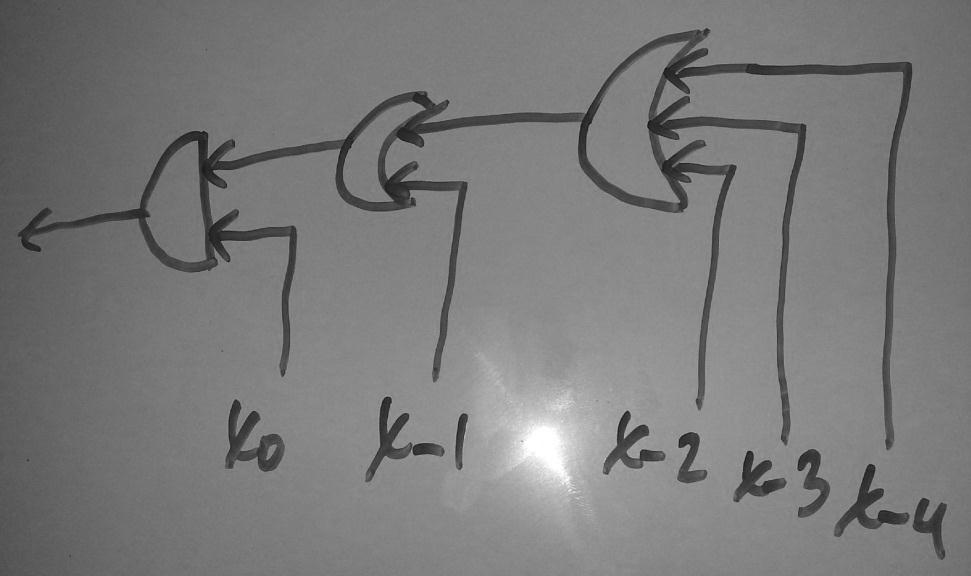 x0 x-1 x-2 x-3 x-4